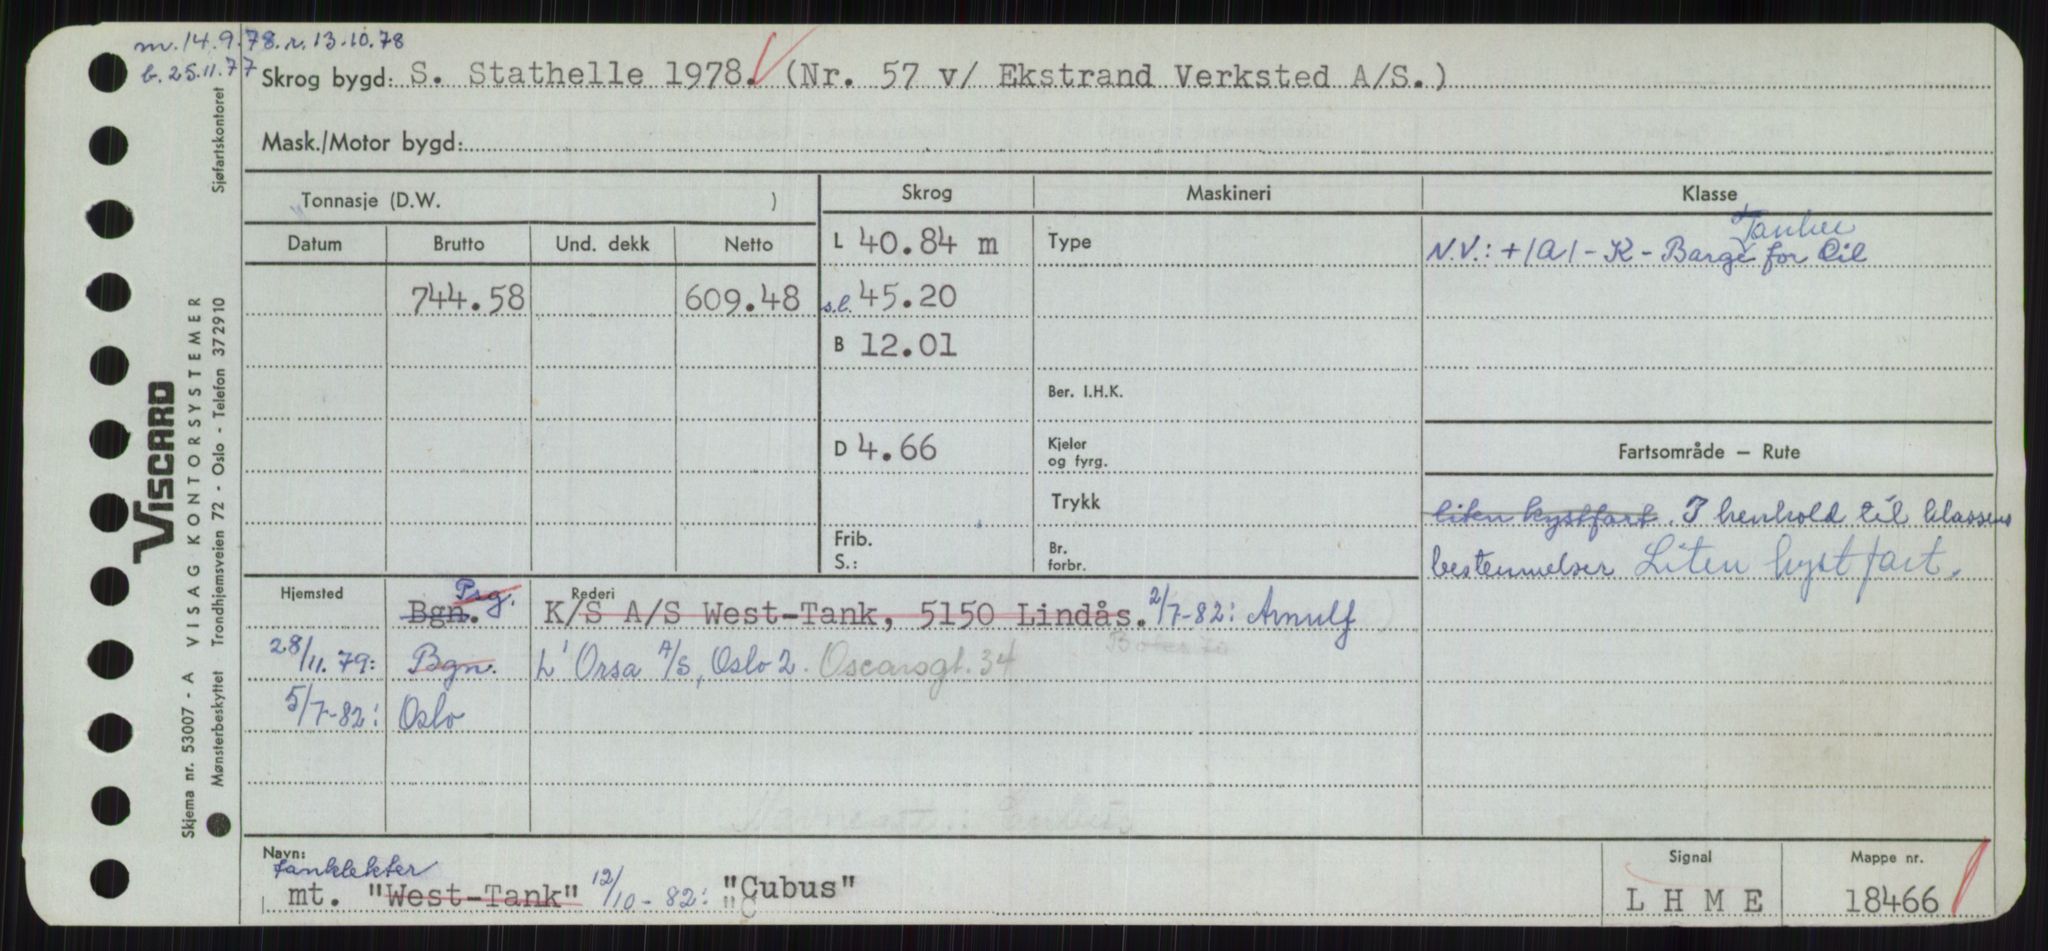 m. 14.9.78. r. 13.10.78
b. 25.11.77
Skrog bygd: S. Stathelle 1978. (Nr. 57 v/ Ekstrand Verksted A/S.)
Mask./Motor bygd:
Tonnasje (D.W. )
Skrog
Maskineri
Klasse
Datum Brutto Und. dekk Netto
L 40.84 m
Type
Tanker
N.V.: +1A1 - K - Barge for Oil
744.58 609.48
s.l. 45.20
B 12.01
Ber. I.H.K.
D 4.66
Kjeler
og fyrg.
Fartsområde — Rute
Trykk
liten kystfart. I henhold til klassens
Frib.
S.:
Br.
forbr.
bestemmelser Liten kystfart.
Hjemsted
Rederi
Psg.
Bgn. K/S A/S West-Tank, 5150 Lindås. 2/7-82: Arnulf
28/11.79: Bgn. L'Orsa A/S, Oslo 2. Oscarsgt. 34
5/7-82: Oslo
Navn:
tanklekter
mt. "West-Tank" 12/10-82: "Cubus"
"C
Signal
L H M E
Mappe nr.
18466
Sjøfartskontoret
VISCARD
VISAG KONTORSYSTEMER
Skjema nr. 53007 - A
Mønsterbeskyttet Trondhjemsveien 72 - Oslo - Telefon 372910